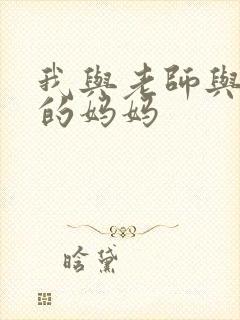 我與老師與
的妈妈
晗黛